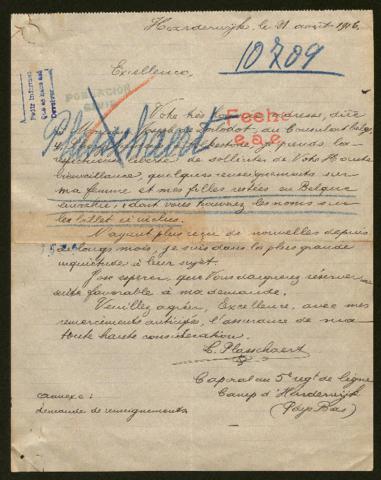 Harderwijk, le 31 août 1916.
10709
Excellence,
Pedir informes
POBLACION
CIVIL
Votre très
Plasschaert
Fecha
de solliciter de Votre Haute
bienveillance, quelques renseignements sur
ma femme et mes filles restées en Belgique
envahie, dont vous trouverez les noms sur
les billets ci inclus.
N'ayant plus reçu de nouvelles depuis
longs mois, je suis dans la plus grande
inquiétude à leur sujet.
J'ose espérer que Vous daignerez réserver
suite favorable à ma demande.
Veuillez agréer, Excellence, avec mes
remerciements anticipés, l'assurance de ma
toute haute considération.
C. Plasschaert
Caporal au 5e regt de ligne
annexe: Camp d'Harderwijk
demande de renseignements (Pays Bas)